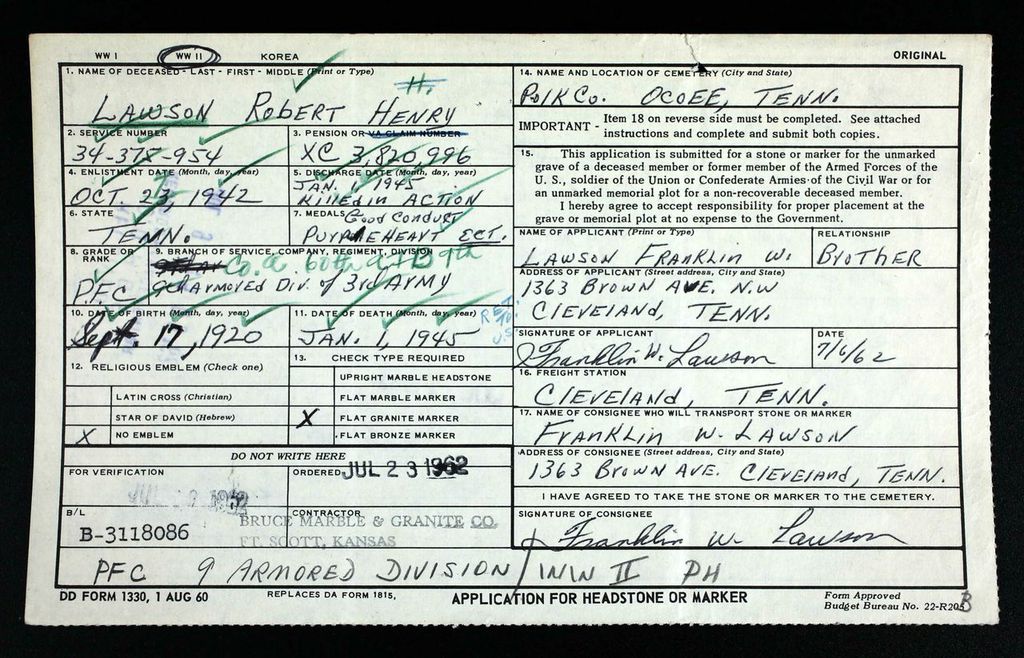 WW I WW II KOREA ORIGINAL
1. NAME OF DECEASED - LAST - FIRST - MIDDLE (Print or Type)
H.
LAWSON ROBERT HENRY
2. SERVICE NUMBER
34-375-954
3. PENSION OR VA CLAIM NUMBER
XC 3,820,996
4. ENLISTMENT DATE (Month, day, year)
OCT. 23, 1942
5. DISCHARGE DATE (Month, day, year)
JAN. 1, 1945
Killed in ACTION
6. STATE
TENN.
7. MEDALS Good Conduct
PURPLE HEART ECT.
8. GRADE OR RANK
PFC
9. BRANCH OF SERVICE, COMPANY, REGIMENT, DIVISION
Co. A 60th 9th
9th ARMORED Div. of 3rd ARMY
10. DATE OF BIRTH (Month, day, year)
Sept. 17, 1920
11. DATE OF DEATH (Month, day, year)
JAN. 1, 1945
12. RELIGIOUS EMBLEM (Check one)
LATIN CROSS (Christian)
STAR OF DAVID (Hebrew)
X NO EMBLEM
13. CHECK TYPE REQUIRED
UPRIGHT MARBLE HEADSTONE
FLAT MARBLE MARKER
X FLAT GRANITE MARKER
FLAT BRONZE MARKER
DO NOT WRITE HERE
FOR VERIFICATION
ORDERED JUL 23 1962
B/L
B-3118086
CONTRACTOR
BRUCE MARBLE & GRANITE CO.
FT. SCOTT, KANSAS
14. NAME AND LOCATION OF CEMETERY (City and State)
Polk Co. OCOEE, TENN.
IMPORTANT - Item 18 on reverse side must be completed. See attached
instructions and complete and submit both copies.
15. This application is submitted for a stone or marker for the unmarked
grave of a deceased member or former member of the Armed Forces of the
U. S., soldier of the Union or Confederate Armies of the Civil War or for
an unmarked memorial plot for a non-recoverable deceased member.
I hereby agree to accept responsibility for proper placement at the
grave or memorial plot at no expense to the Government.
NAME OF APPLICANT (Print or Type)
LAWSON FRANKLIN W.
RELATIONSHIP
BROTHER
ADDRESS OF APPLICANT (Street address, City and State)
1363 BROWN AVE. N.W
CLEVELAND, TENN.
SIGNATURE OF APPLICANT
Franklin W. Lawson
DATE
7/6/62
16. FREIGHT STATION
CLEVELAND, TENN.
17. NAME OF CONSIGNEE WHO WILL TRANSPORT STONE OR MARKER
FRANKLIN W. LAWSON
ADDRESS OF CONSIGNEE (Street address, City and State)
1363 BROWN AVE. CLEVELAND, TENN.
I HAVE AGREED TO TAKE THE STONE OR MARKER TO THE CEMETERY.
SIGNATURE OF CONSIGNEE
Franklin W. Lawson
PFC 9 ARMORED DIVISION / WW II PH
DD FORM 1330, 1 AUG 60 REPLACES DA FORM 1815, APPLICATION FOR HEADSTONE OR MARKER
Form Approved
Budget Bureau No. 22-R205